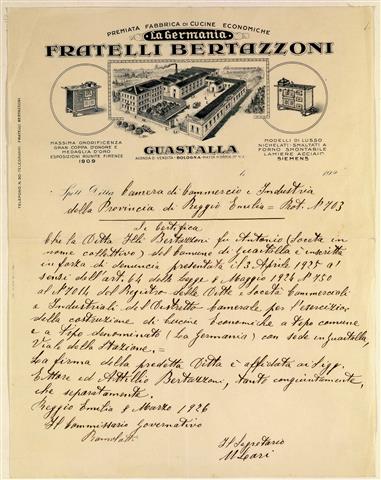 PREMIATA FABBRICA DI CUCINE ECONOMICHE
"La Germania"
FRATELLI BERTAZZONI
MASSIMA ONORIFICENZA
GRAN COPPA D'ONORE E
MEDAGLIA D'ORO
ESPOSIZIONI RIUNITE FIRENZE
1909
GUASTALLA
AGENZIA DI VENDITA - BOLOGNA -
MODELLI DI LUSSO
NICHELATI-SMALTATI A
FORNO SMONTABILE
LAMIERE ACCIAIO
SIEMENS
TELEFONO N. 90 - TELEGRAMMI: FRATELLI BERTAZZONI
Spett. Ditta Camera di Commercio e Industria
della Provincia di Reggio Emilia = Prot. N° 703
Si Certifica
Che la Ditta F.lli Bertazzoni fu Antonio (Società in
nome collettivo) del Comune di Guastalla è inscritta
in forza di denuncia presentata il 3 Aprile a
sensi dell'art. 64 della legge 8 Maggio N° 750
al N° del Registro delle Ditte e Società Commerciali
e Industriali del Distretto Camerale per l'esercizio,
della costruzione di cucine Economiche a tipo comune
e a tipo denominati (La Germania) con sede in Guastalla,
Viale della Stazione, =
La firma della predetta Ditta è affidata ai Sigg.
Ettore ed Attilio Bertazzoni, tanto congiuntamente,
che separatamente.
Reggio Emilia 8 Marzo 1926
Il Commissario Governativo
Il Segretario